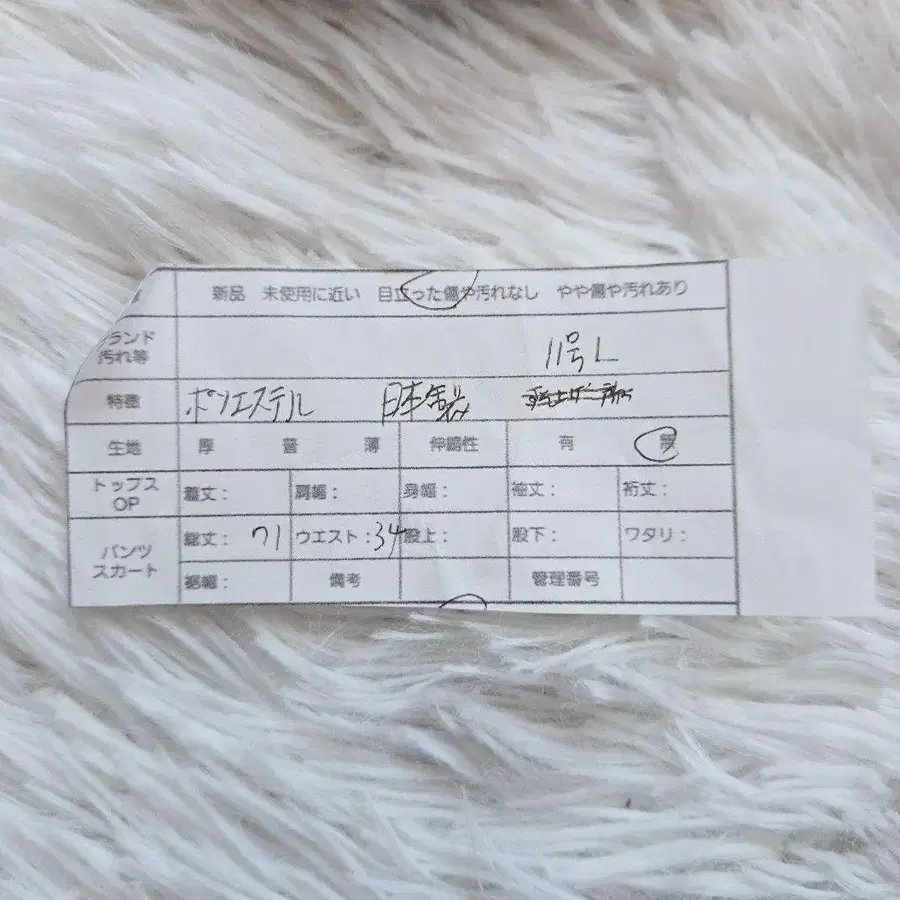 新品 未使用に近い 目立った傷や汚れなし やや傷や汚れあり
ランド
汚れ等
11号L
特徴 ポリエステル 日本製
生地 厚 普 薄 伸縮性 有 無
トップス
OP
着丈: 肩幅: 身幅: 袖丈: 裄丈:
パンツ
スカート
総丈: 71 ウエスト:34 股上: 股下: ワタリ:
裾幅: 備考 管理番号